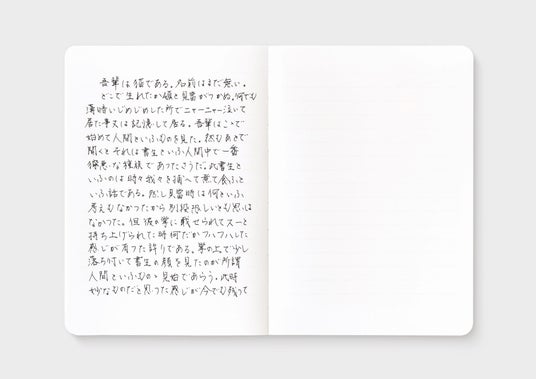 吾輩は猫である。名前はまだ無い。
どこで生れたか頓と見当がつかぬ。何でも
薄暗いじめじめした所でニャーニャー泣いて
居た事又は記憶して居る。吾輩はここで
始めて人間といふものを見た。然もあとで
聞くとそれは書生といふ人間中で一番
獰悪な種族であつたさうだ。此書生と
いふのは時々我々を捕へて煮て食ふと
いふ話である。然し其當時は何といふ
考えもなかつたから別段恐しいとも思は
なかつた。但彼の掌に載せられてスーと
持ち上げられた時何だかフハフハした
感じが有つた許りである。掌の上で少し
落ち付いて書生の顔を見たのが所謂
人間といふものゝ見始であらう。此時
妙なものだと思つた感じが今でも残つて